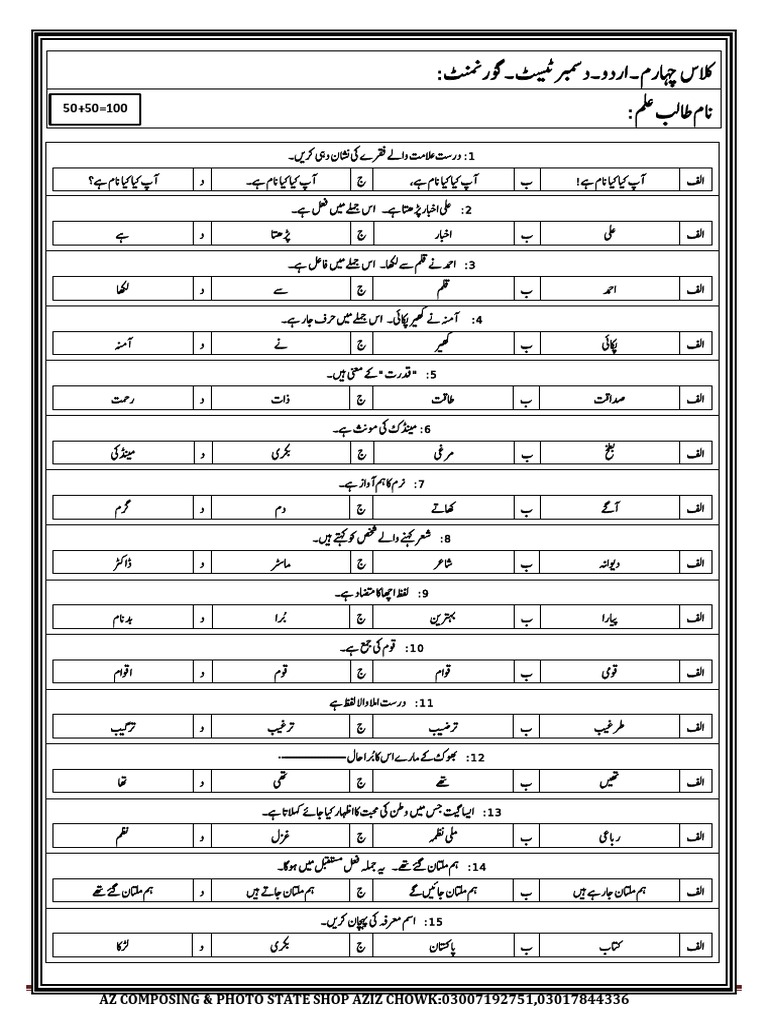 کلاس چہارم۔ اردو۔ دسمبر ٹیسٹ۔ گورنمنٹ:
نام طالب علم:
50+50=100
1: درست علامت والے فقرے کی نشان دہی کریں۔
الف آپ کیا کیا نام ہے! ب آپ کیا کیا نام ہے، ج آپ کیا کیا نام ہے۔ د آپ کیا کیا نام ہے؟
2: علی اخبار پڑھتا ہے۔ اس جملے میں فعل ہے۔
الف علی ب اخبار ج پڑھتا د ہے
3: احمد نے قلم سے لکھا۔ اس جملے میں فاعل ہے۔
الف احمد ب قلم ج سے د لکھا
4: آمنہ نے کھیر پکائی۔ اس جملے میں حرف جار ہے۔
الف پکائی ب کھیر ج نے د آمنہ
5: "قدرت" کے معنی ہیں۔
الف صداقت ب طاقت ج ذات د رحمت
6: مینڈک کی مونث ہے۔
الف بطخ ب مرغی ج بکری د مینڈکی
7: نرم کا ہم آواز ہے۔
الف آگے ب کھاتے ج دم د گرم
8: شعر کہنے والے شخص کو کہتے ہیں۔
الف دیوانہ ب شاعر ج ماسٹر د ڈاکٹر
9: لفظ اچھا کا متضاد ہے۔
الف پیارا ب بہترین ج بُرا د بدنام
10: قوم کی جمع ہے۔
الف قومی ب قوام ج قوم د اقوام
11: درست املا والا لفظ ہے
الف طرغیب ب ترضیب ج ترغیب د ترکیب
12: بھوک کے مارے اس کا بُرا حال ـــــــــــــــ۔
الف تھیں ب تھے ج تھی د تھا
13: ایسا گیت جس میں وطن کی محبت کا اظہار کیا جائے کہلاتا ہے۔
الف رباعی ب ملی نغمہ ج غزل د نظم
14: ہم ملتان گئے تھے۔ یہ جملہ فعل مستقبل میں ہوگا۔
الف ہم ملتان جا رہے ہیں ب ہم ملتان جائیں گے ج ہم ملتان جاتے ہیں د ہم ملتان گئے تھے
15: اسم معرفہ کی پہچان کریں۔
الف کتاب ب پاکستان ج بکری د لڑکا
AZ COMPOSING & PHOTO STATE SHOP AZIZ CHOWK:03007192751,03017844336